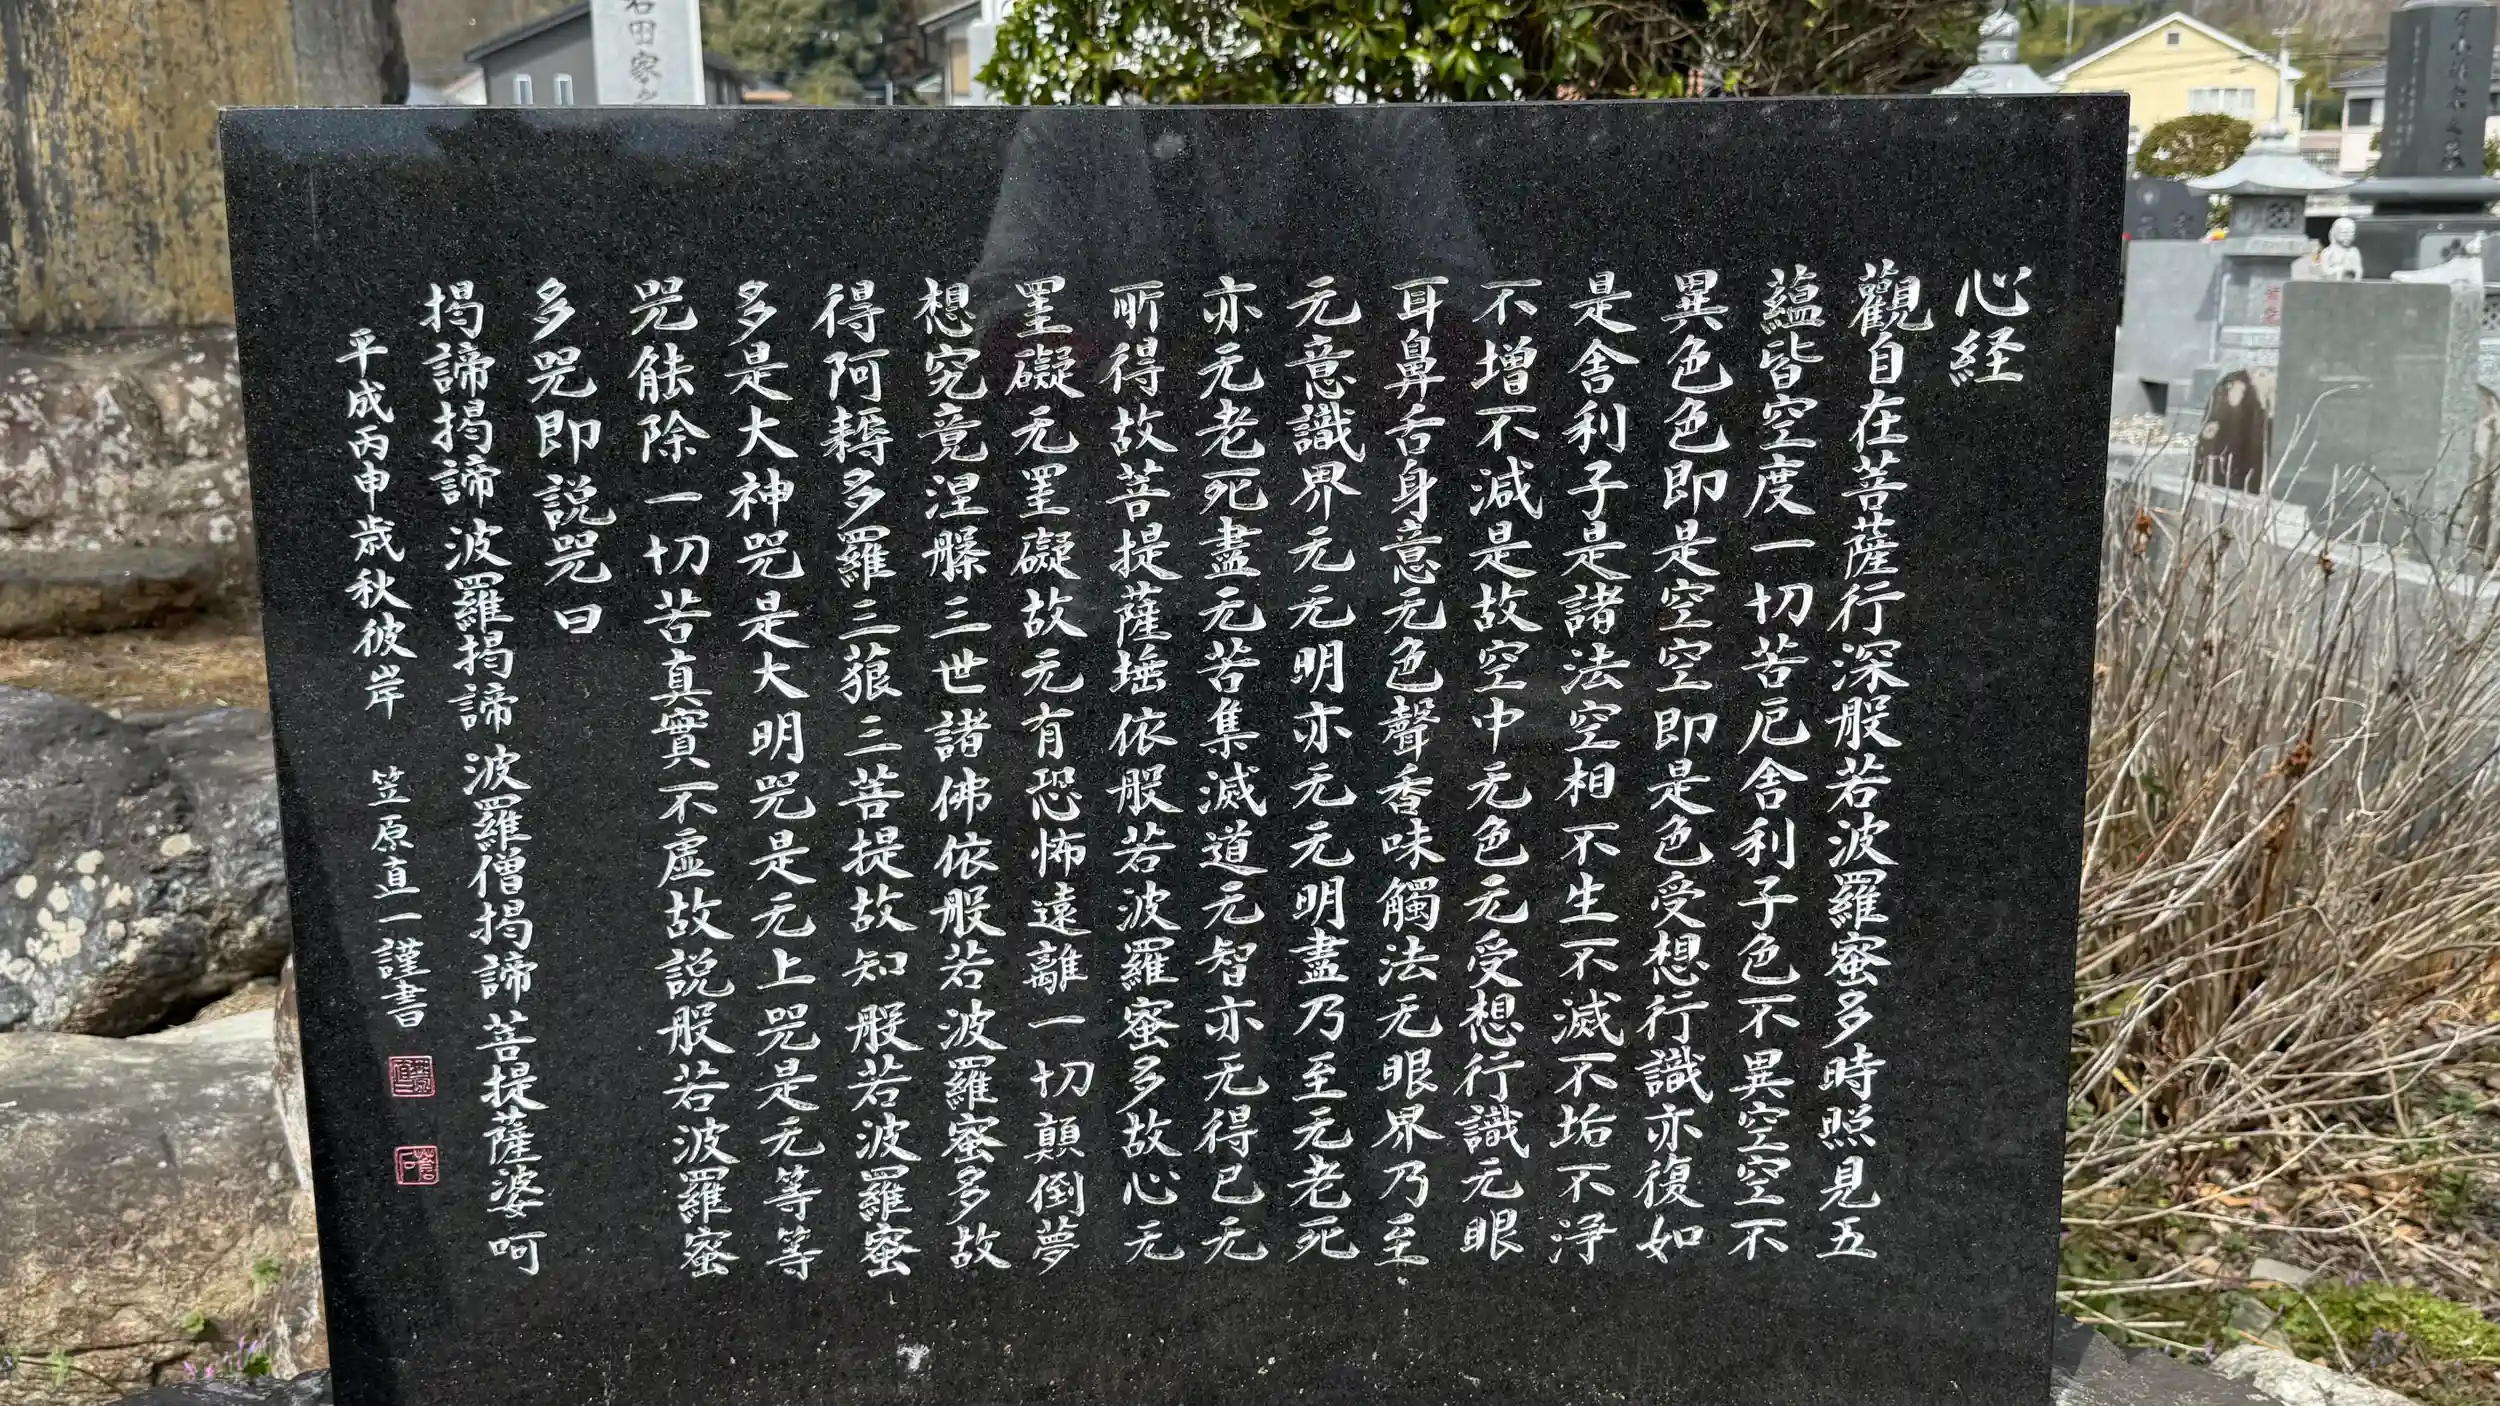 心経
觀自在菩薩行深般若波羅蜜多時照見五
蘊皆空度一切苦厄舎利子色不異空空不
異色色即是空空即是色受想行識亦復如
是舎利子是諸法空相不生不滅不垢不浄
不増不減是故空中无色无受想行識无眼
耳鼻舌身意无色聲香味觸法无眼界乃至
无意識界无无明亦无无明盡乃至无老死
亦无老死盡无苦集滅道无智亦无得已无
所得故菩提薩埵依般若波羅蜜多故心无
罣礙无罣礙故无有恐怖遠離一切顛倒夢
想究竟涅槃三世諸佛依般若波羅蜜多故
得阿耨多羅三藐三菩提故知般若波羅蜜
多是大神咒是大明咒是无上咒是无等等
咒能除一切苦真實不虚故説般若波羅蜜
多咒即説咒曰
掲諦掲諦波羅掲諦波羅僧掲諦菩提薩婆呵
平成丙申歳秋彼岸 笠原直一謹書
田家